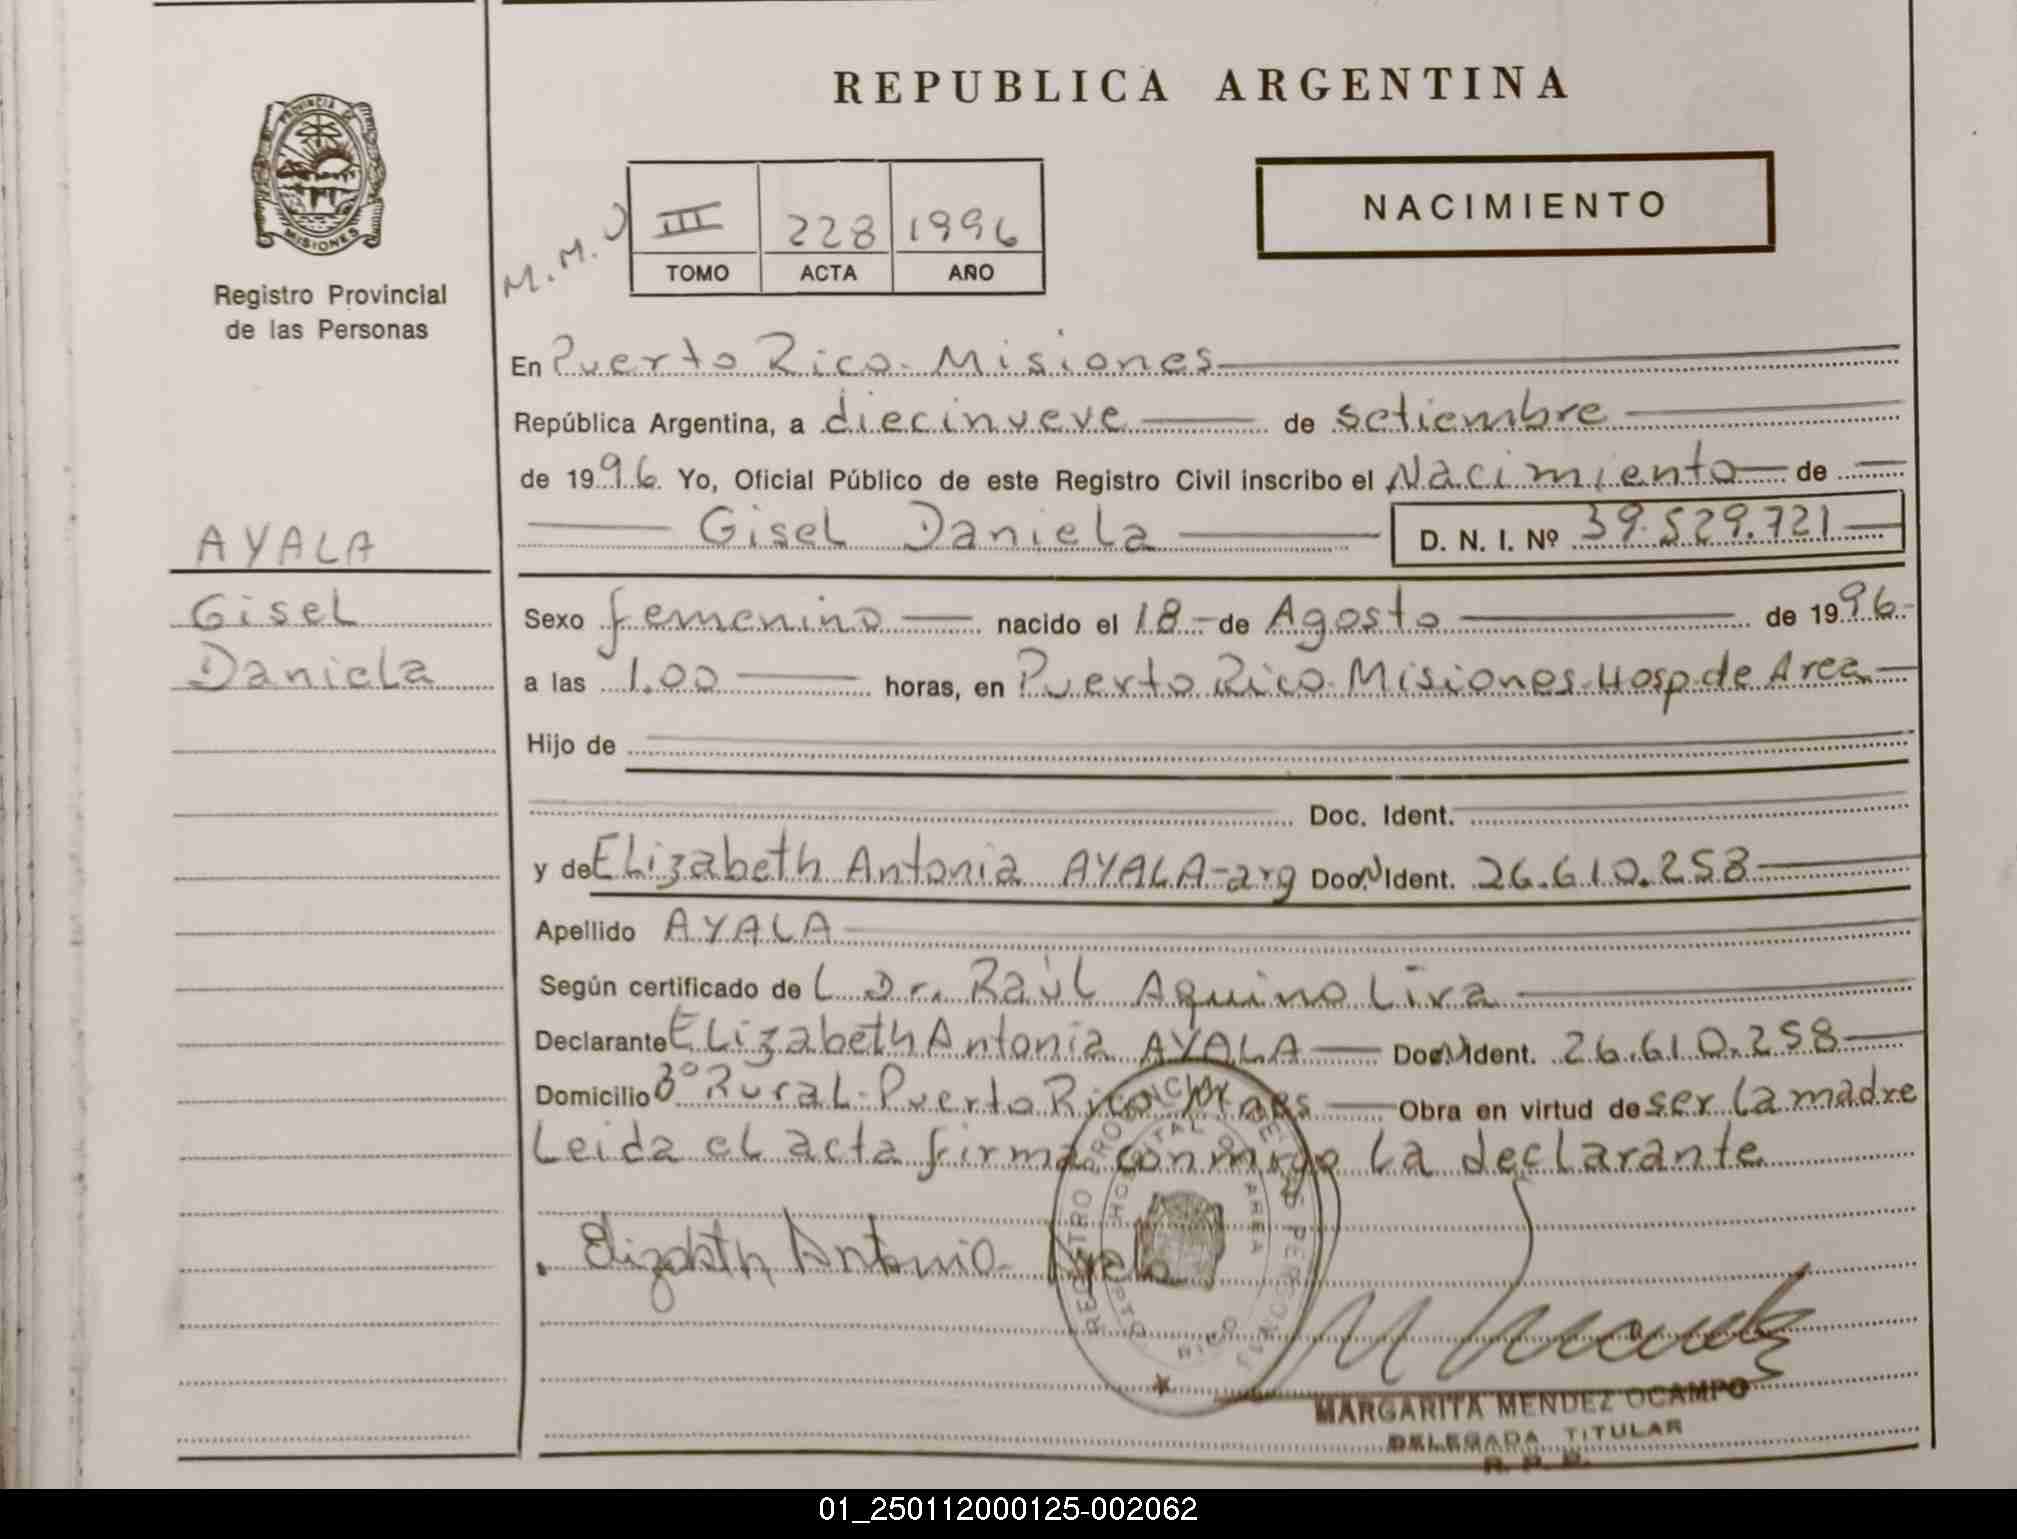 REPUBLICA ARGENTINA
PROVINCIA DE
MISIONES
Registro Provincial
de las Personas
M.M.J
III 228 1996
TOMO ACTA AÑO
NACIMIENTO
En Puerto Rico - Misiones
República Argentina, a diecinueve de setiembre
de 1996. Yo, Oficial Público de este Registro Civil inscribo el Nacimiento de
Gisel Daniela D. N. I. Nº 39.529.721
AYALA
Gisel
Daniela
Sexo femenino nacido el 18 - de Agosto de 1996
a las 1.00 horas, en Puerto Rico - Misiones - Hosp. de Area
Hijo de
Doc. Ident.
y de Elizabeth Antonia AYALA - arg Doc. Ident. 26.610.258
Apellido AYALA
Según certificado de L Dr. Raúl Aquino Lira
Declarante Elizabeth Antonia AYALA Doc. Ident. 26.610.258
Domicilio 3º Rural - Puerto Rico Mnes Obra en virtud de ser la madre
Leida el acta firma conmigo la declarante
Elizabeth Antonia Ayala
REGISTRO PROVINCIAL DE LAS PERSONAS
HOSPITAL DE AREA
MARGARITA MENDEZ OCAMPO
DELEGADA TITULAR
R. P. P.
01_250112000125-002062